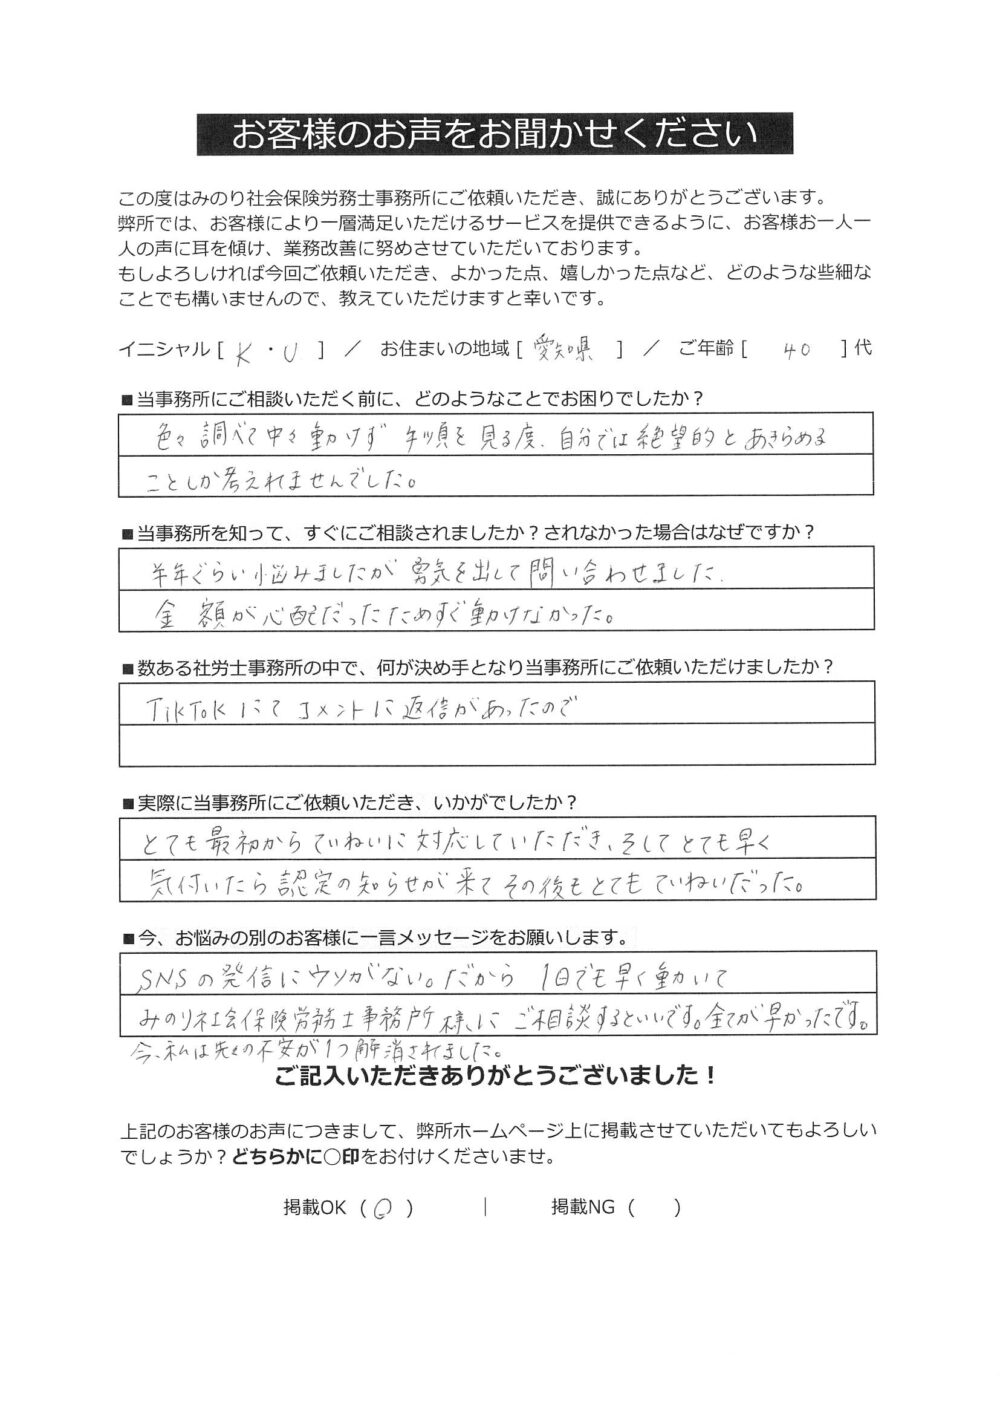 お客様のお声をお聞かせください
この度はみのり社会保険労務士事務所にご依頼いただき、誠にありがとうございます。
弊所では、お客様により一層満足いただけるサービスを提供できるように、お客様お一人一
人の声に耳を傾け、業務改善に努めさせていただいております。
もしよろしければ今回ご依頼いただき、よかった点、嬉しかった点など、どのような些細な
ことでも構いませんので、教えていただけますと幸いです。
イニシャル [ K ・ U ] ／ お住まいの地域 [ 愛知県 ] ／ ご年齢 [ 40 ]代
■当事務所にご相談いただく前に、どのようなことでお困りでしたか？
色々調べて中々動けず 年頃を見る度、自分では絶望的とあきらめる
ことしか考えれませんでした。
■当事務所を知って、すぐにご相談されましたか？されなかった場合はなぜですか？
半年ぐらい悩みましたが勇気を出して問い合わせました.
金額が心配だったためすぐ動けなかった。
■数ある社労士事務所の中で、何が決め手となり当事務所にご依頼いただけましたか？
TikTokにてコメントに返信があったので
■実際に当事務所にご依頼いただき、いかがでしたか？
とても最初からていねいに対応していただき、そしてとても早く
気付いたら認定の知らせが来てその後もとてもていねいだった。
■今、お悩みの別のお客様に一言メッセージをお願いします。
SNSの発信にウソがない。だから 1日でも早く動いて
みのり社会保険労務士事務所様、にご相談するといいです。全てが早かったです。
今、私は先々の不安が1つ解消されました。
ご記入いただきありがとうございました！
上記のお客様のお声につきまして、弊所ホームページ上に掲載させていただいてもよろしい
でしょうか？どちらかに○印をお付けくださいませ。
掲載OK （○） ｜ 掲載NG （ ）